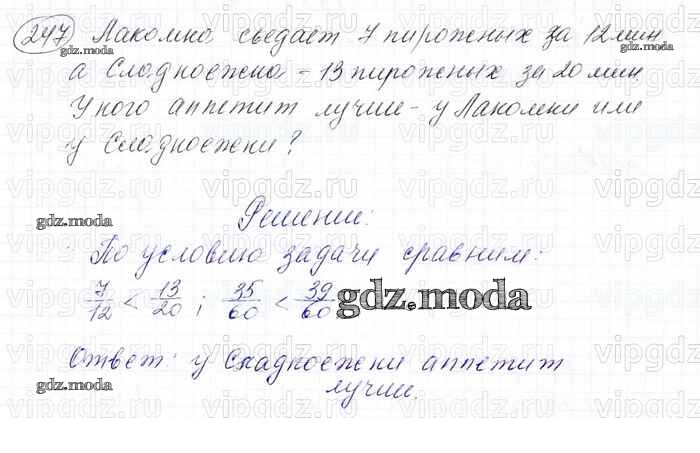 247 Лакомка съедает 7 пирожных за 12 мин,
а Сладкоежка - 13 пирожных за 20 мин
У кого аппетит лучше - у Лакомки или
у Сладкоежки?
Решение:
По условию задачи сравним:
7/12 < 13/20 ; 35/60 < 39/60
Ответ: у Сладкоежки аппетит
лучше.
gdz.moda
gdz.moda
gdz.moda
gdz.moda
gdz.moda
vipgdz.ru